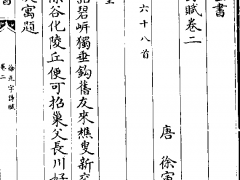 書
賦卷二
唐 徐寅
六十八首
碧岍獨垂鈎舊友來樵叟新交
谷化陵丘便可招巢父長川好
寓題
徐正字詩賦
卷二